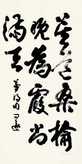 莫道桑榆
晚為霞尚
滿天